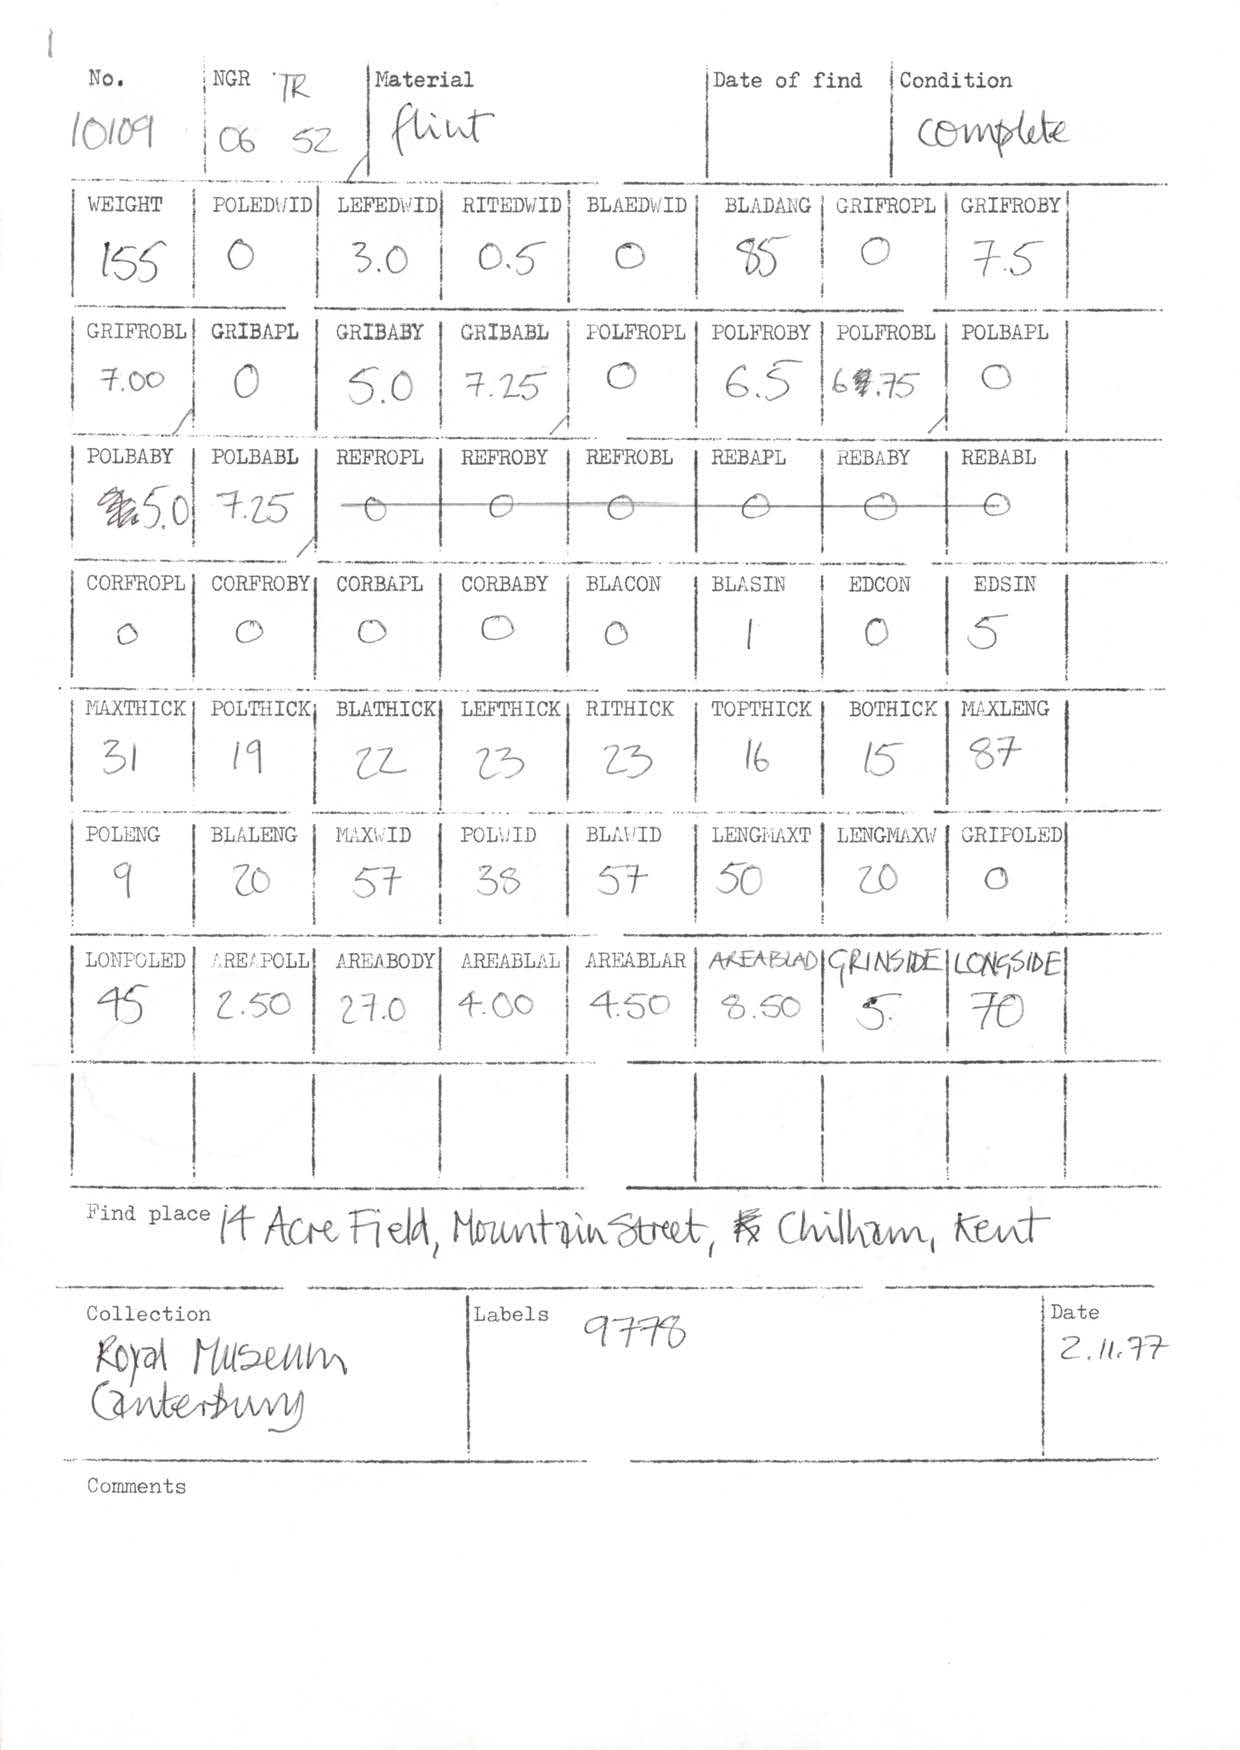 No. NGR TR Material Date of find Condition
10109 06 52 flint complete
WEIGHT POLEDWID LEFEDWID RITEDWID BLAEDWID BLADANG GRIFROPL GRIFROBY
155 0 3.0 0.5 0 85 0 7.5
GRIFROBL GRIBAPL GRIBABY GRIBABL POLFROPL POLFROBY POLFROBL POLBAPL
7.00 0 5.0 7.25 0 6.5 6.75 0
POLBABY POLBABL REFROPL REFROBY REFROBL REBAPL REBABY REBABL
5.0 7.25 0 0 0 0 0 0
CORFROPL CORFROBY CORBAPL CORBABY BLACON BLASIN EDCON EDSIN
0 0 0 0 0 1 0 5
MAXTHICK POLTHICK BLATHICK LEFTHICK RITHICK TOPTHICK BOTHICK MAXLENG
31 19 22 23 23 16 15 87
POLENG BLALENG MAXWID POLWID BLAWID LENGMAXT LENGMAXW GRIPOLED
9 20 57 38 57 50 20 0
LONPOLED AREAPOLL AREABODY AREABLAL AREABLAR AREABLAD GRINSIDE LONGSIDE
45 2.50 27.0 4.00 4.50 8.50 5. 70
Find place 14 Acre Field, Mountain Street, Chilham, Kent
Collection Labels 9778 Date
Royal Museum 2.11.77
Canterbury
Comments